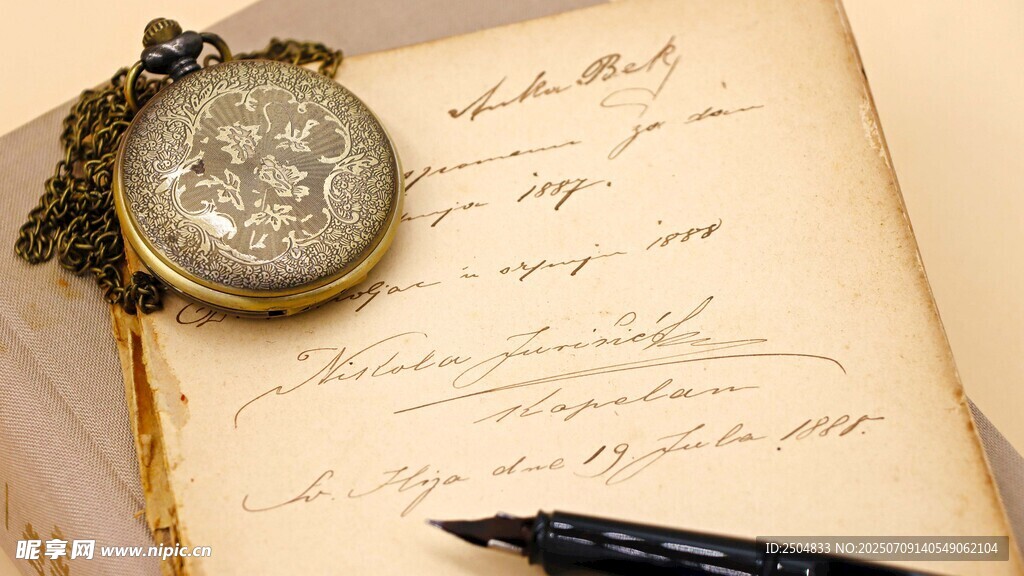 Anka Bek
za dan
1887.
u srpnju 1888
Nikola Jurišić
Kapelan
Sv. Ilija dne 19. Jula 1888.
昵享网 www.nipic.cn
ID:2504833 NO:20250709140549062104